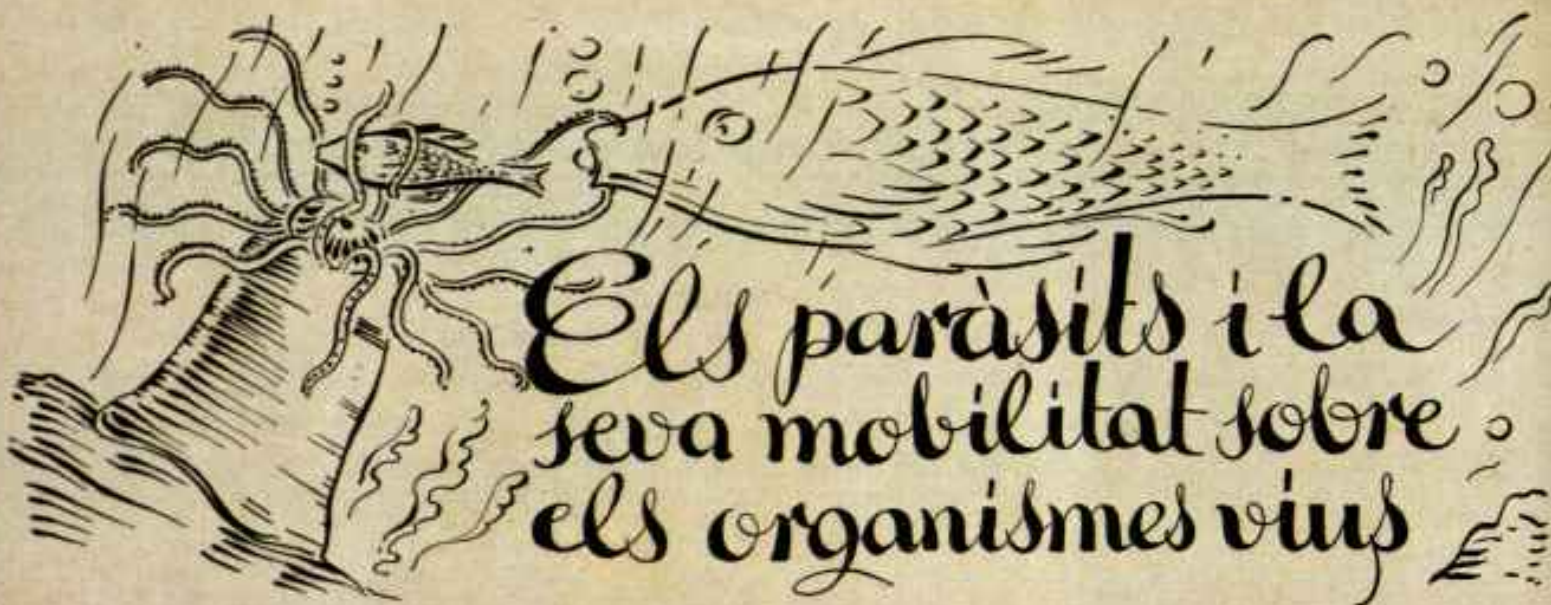 Els paràsits i la
seva mobilitat sobre
els organismes vius